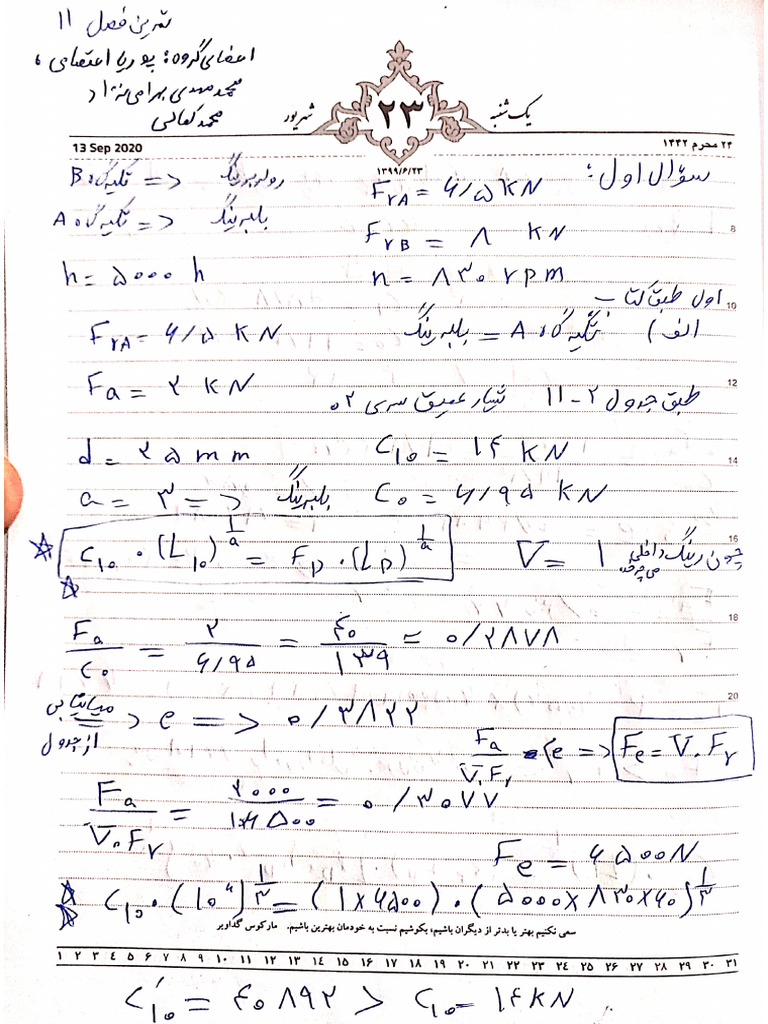 تمرین فصل ۱۱
اعضای گروه: پوریا اعتصامی،
محمد مهدی بهرامی نژاد
محمد کمالی
یک شنبه ۲۳ شهریور
13 Sep 2020 ۱۳۹۹/۶/۲۳ ۲۴ محرم ۱۴۴۲
سؤال اول:
FrA = ۶/۵ kN رولربرینگ <= تکیه گاه B
8
FrB = ۸ kN بلبرینگ <= تکیه گاه A
h = ۵۰۰۰ h n = ۸۳۰ rpm
اول طبق کتاب
10
الف) تکیه گاه A = بلبرینگ FrA = ۶/۵ kN
12
Fa = ۲ kN طبق جدول ۲-۱۱ شیار عمیق سری ۰۲
14
d = ۲۵ mm C₁₀ = ۱۴ kN
a = ۳ => بلبرینگ C₀ = ۶/۹۵ kN
16
C₁₀ · (L₁₀)^(1/a) = FD · (LD)^(1/a) V = ۱ چون رینگ داخلی می چرخد
18
Fa/C₀ = ۲/۶/۹۵ = ۴۰/۱۳۹ = ۰/۲۸۷۸
20
میانیابی از جدول > e => ۰/۳۸۲۲
Fa/V.Fr < e => Fe = V.Fr
Fa/V.Fr = ۲۰۰۰/۱×۶۵۰۰ = ۰/۳۰۷۷
Fe = ۶۵۰۰ N
C₁₀ · (۱۰^۶)^(1/۳) = (۱×۶۵۰۰) · (۵۰۰۰×۸۳۰×۶۰)^(1/۳)
سعی نکنیم بهتر یا بدتر از دیگران باشیم، بکوشیم نسبت به خودمان بهترین باشیم. مارکوس گداویر
۱ ۲ ۳ ۴ ۵ ۶ ۷ ۸ ۹ ۱۰ ۱۱ ۱۲ ۱۳ ۱۴ ۱۵ ۱۶ ۱۷ ۱۸ ۱۹ ۲۰ ۲۱ ۲۲ ۲۳ ۲۴ ۲۵ ۲۶ ۲۷ ۲۸ ۲۹ ۳۰ ۳۱
C'₁₀ = ۴۰۸۹۲ > C₁₀ = ۱۴ kN